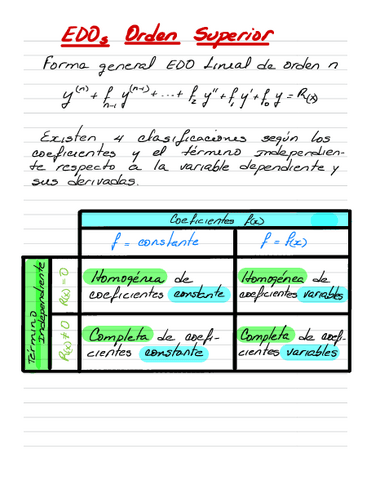 EDOs Orden Superior
Forma general EDO Lineal de orden n
y⁽ⁿ⁾ + fₙ₋₁ y⁽ⁿ⁻¹⁾ + ... + f₂ y'' + f₁ y' + f₀ y = R(x)
Existen 4 clasificaciones según los
coeficientes y el término Independien-
te respecto a la variable dependiente y
sus derivadas.
Coeficientes f(x)
f = constante
f = f(x)
Término Independiente
R(x) = 0
Homogénea de
coeficientes constante
Homogénea de
coeficientes variables
R(x) ≠ 0
Completa de coefi-
cientes constante
Completa de coefi-
cientes variables